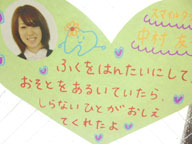 中村
ふくをはんたいにして
おそとをあるいていたら、
しらないひとがおしえ
てくれたよ